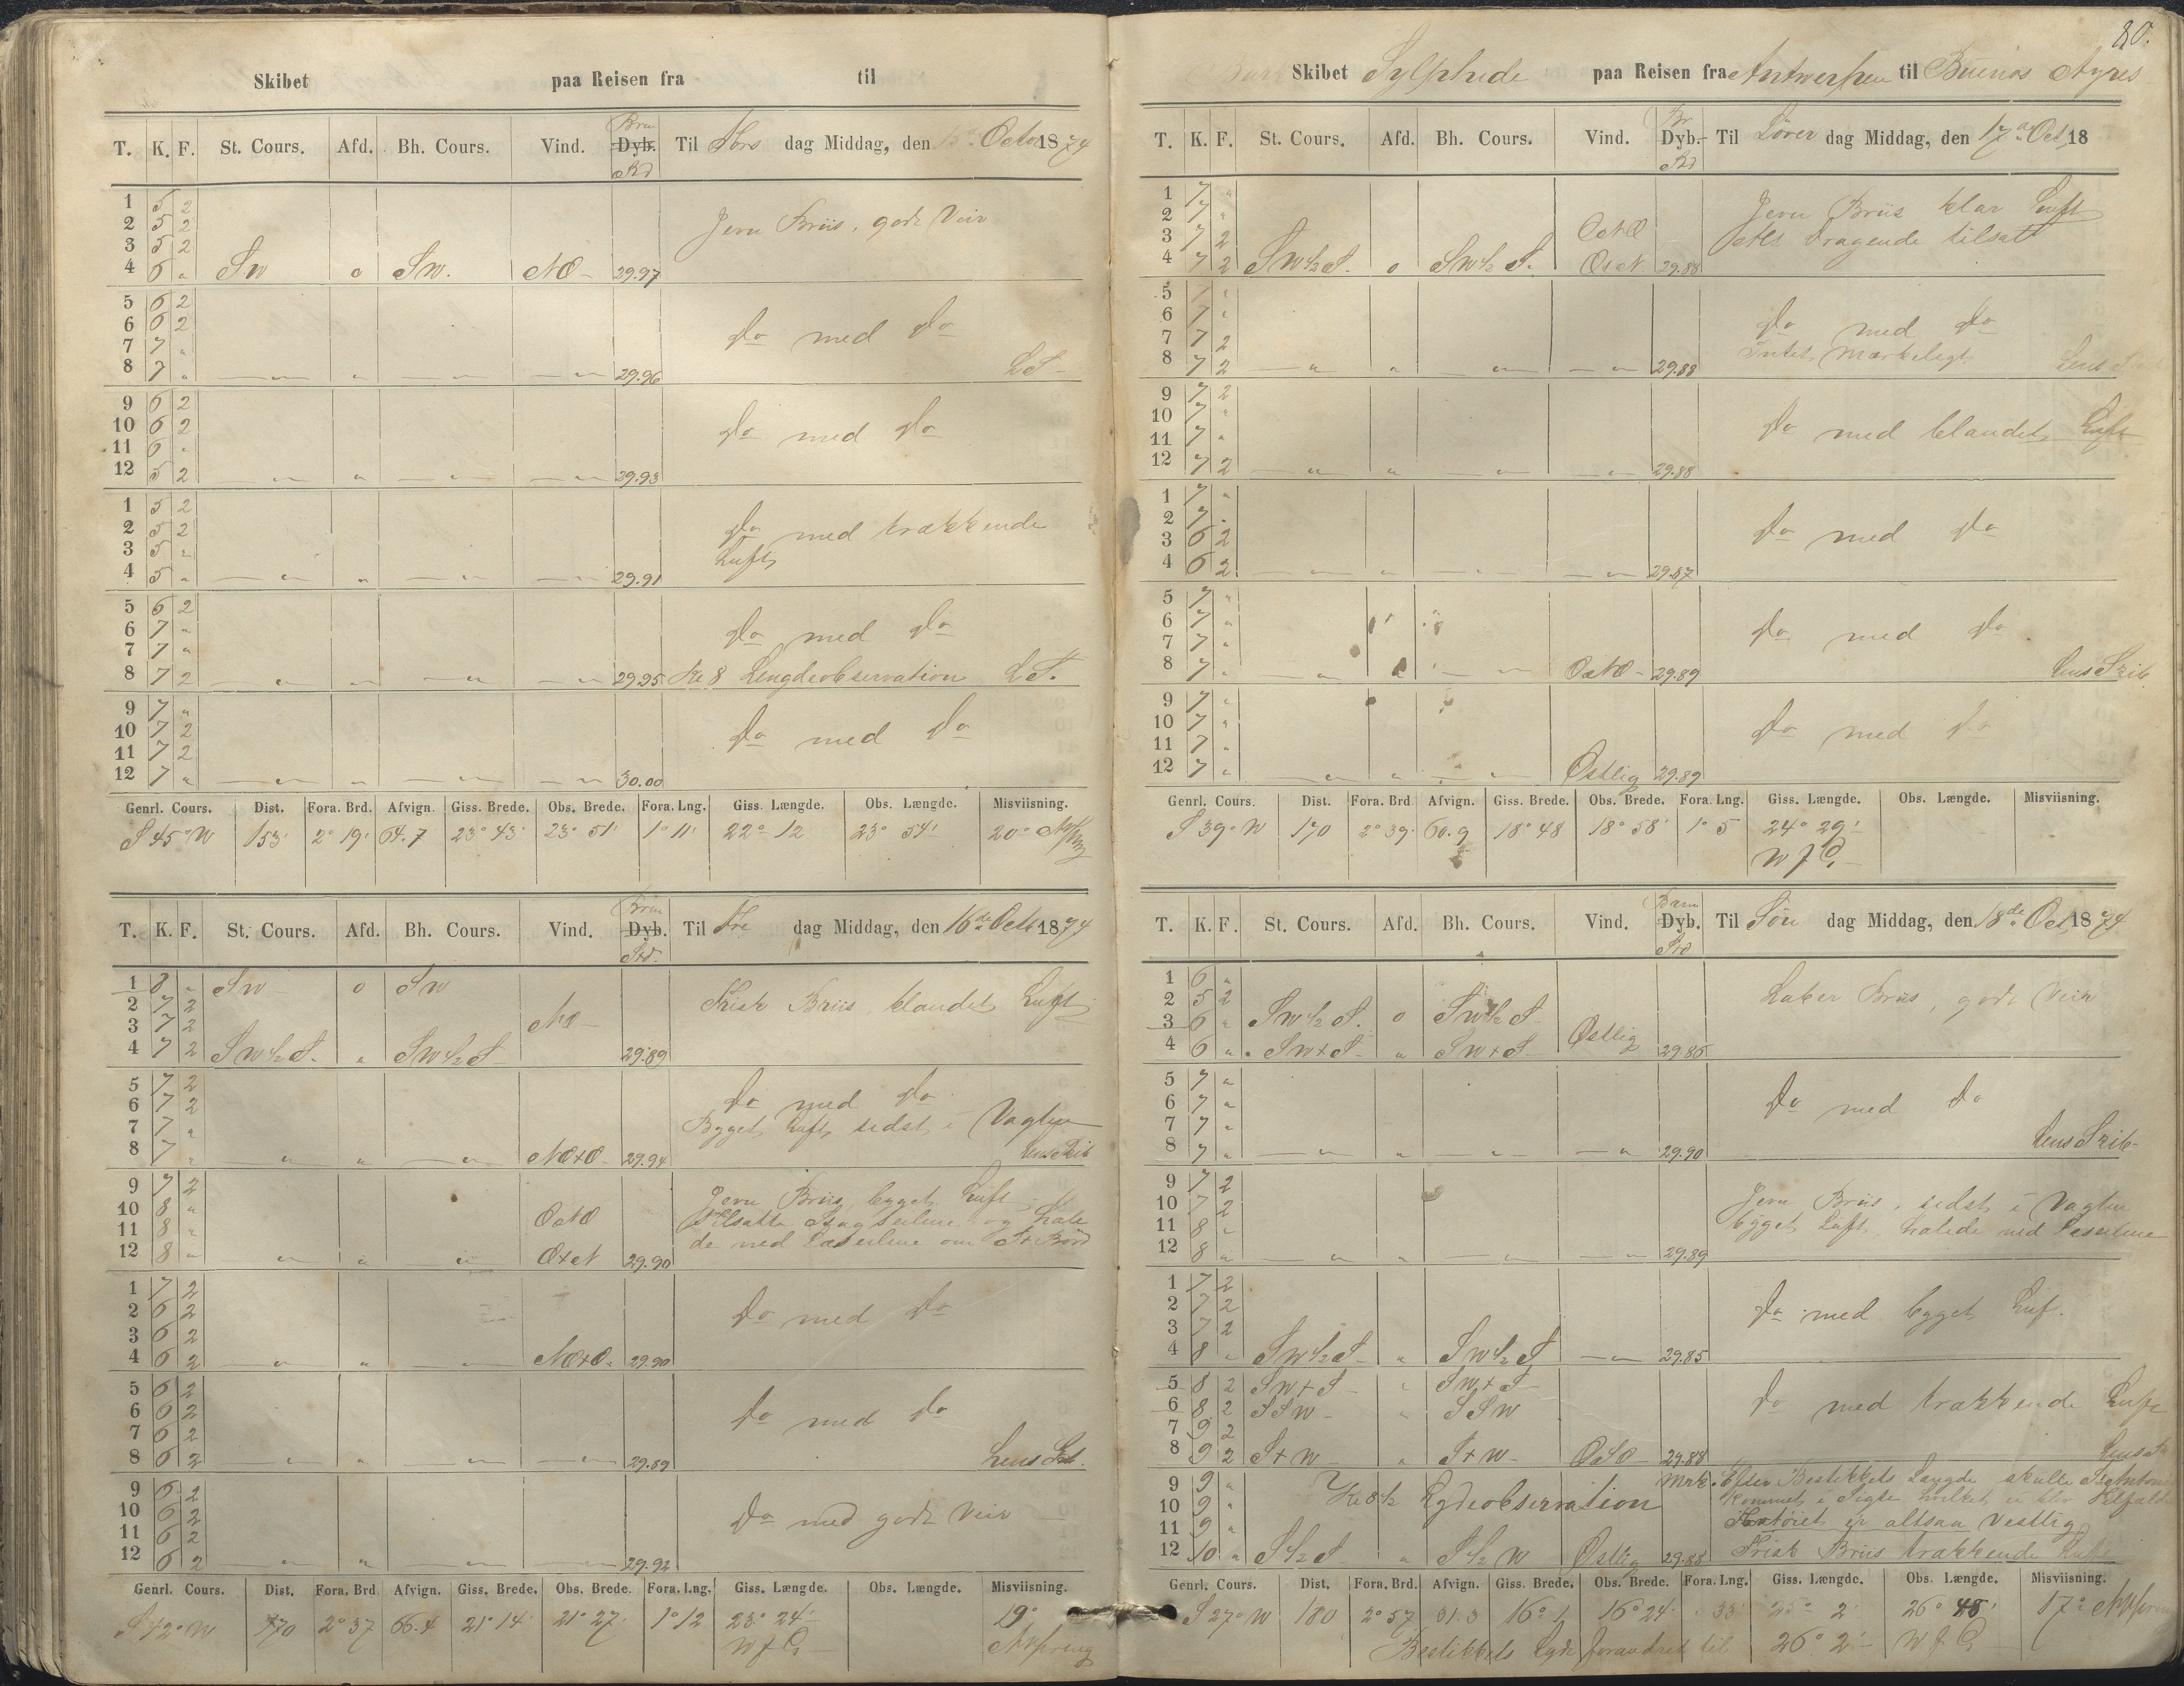 Skibet paa Reisen fra til
T. K. F. St. Cours. Afd. Bh. Cours. Vind. Dyb. Til Tors dag Middag, den 15de Octo 1874
1 5 2
2 5 2 Jevn Briis, godt Veir
3 5 2
4 6 " SW o SW. NO 29.97
5 6 2
6 6 2 Do med Do
7 7 "
8 7 " — " — " — " — — " 29.96 LS
9 6 2
10 6 2 Do med Do
11 6 "
12 5 2 — " — " — " — — " 29.93
1 5 2
2 5 2 Do med trækkende
3 5 " Luft
4 5 " — " — " — " — — " 29.91
5 6 2
6 7 " Do med Do
7 7 "
8 7 2 — " — " — " — — " 29.95 Kl 8 Lengdeobservation LS.
9 7 "
10 7 2 Do med Do
11 7 2
12 7 " — " — " — " — — " 30.00
Genrl. Cours. Dist. Fora. Brd. Afvign. Giss. Brede. Obs. Brede. Fora. Lng. Giss. Længde. Obs. Længde. Misviisning.
S 45° W 153' 2° 19' 64.7 23° 43' 23° 51' 1° 11' 22° 12 23° 54' 20°
T. K. F. St. Cours. Afd. Bh. Cours. Vind. Dyb. Til Fre dag Middag, den 16de Octb 1874
1 8 " SW o SW
2 7 2 Frisk Briis, blandet Luft
3 7 2 NO
4 7 2 SW ½ S. " SW ½ S 29.89
5 7 2
6 7 2 Do med Do
7 7 " Bygget Luft sidst i Vagten
8 7 " " " — " — NO+O 29.94 Lens Skib
9 7 2 Jevn Briis, bygget Luft
10 8 " ONO Tilsatte Stagseilene og hale
11 8 " de ned Læseilene om St Bord
12 8 " " " " O+N 29.90
1 7 2
2 6 2 Do med Do
3 6 2
4 6 2 — " — " — " — NO+O. 29.90
5 6 2
6 6 2 Do med Do
7 6 2
8 6 2 — " — " — " — — " 29.89 Lens Sk.
9 6 2
10 6 2 Do med godt Veir
11 6 2
12 6 2 — " — " — " — — " 29.92
Genrl. Cours. Dist. Fora. Brd. Afvign. Giss. Brede. Obs. Brede. Fora. Lng. Giss. Længde. Obs. Længde. Misviisning.
S 42° W 170 2° 37 66.4 21° 14' 21° 27' 1° 12 23° 24' 19°
80.
Skibet Sylphide paa Reisen fra Antwerpen til Buenos Ayres
T. K. F. St. Cours. Afd. Bh. Cours. Vind. Dyb. Til Löver dag Middag, den 17de Oct 18
1 7 " Jevn Briis klar Luft
2 7 " Als dragende tilsatt
3 7 2 ONO
4 7 2 SW ½ S. o SW ½ S. 29.88
5 7 "
6 7 " Do med Do
7 7 2 Intet Mærkeligt
8 7 2 — " " — " — — " 29.88 Lens
9 7 2
10 7 " Do med blandet Luft
11 7 "
12 7 2 — " — " — " — — " 29.88
1 7 "
2 7 " Do med Do
3 6 2
4 6 2 — " — " — " — — " 29.87
5 7 "
6 7 " Do med Do
7 7 "
8 7 " " — " ONO 29.89 Lens Skib
9 7 "
10 7 " Do med Do
11 7 "
12 7 " — " " — " Østlig 29.89
Genrl. Cours. Dist. Fora. Brd. Afvign. Giss. Brede. Obs. Brede. Fora. Lng. Giss. Længde. Obs. Længde. Misviisning.
S 39° W 170 2° 39' 60.9 18° 48 18° 58' 1° 5 24° 29'
T. K. F. St. Cours. Afd. Bh. Cours. Vind. Dyb. Til Søn dag Middag, den 18de Oct, 1874
1 6 " Laber Briis, godt Veir
2 5 2
3 6 " SW ½ S. o SW ½ S
4 6 " SW+S " SW+S Østlig 29.86
5 7 "
6 7 " Do med Do
7 7 "
8 7 " — " " — " — — " 29.90 Lens Skib
9 7 2 Jevn Briis, sidst i Vagten
10 7 2 bygget Luft, halede ned Læseilene
11 8 "
12 8 " " " — " — — " 29.89
1 7 2
2 7 2 Do med bygget Luf.
3 7 2
4 8 " SW ½ S " SW ½ S — " 29.85
5 8 2 SW+S " SW+S
6 8 2 SSW " SSW Do med trækkende Luft
7 9 2
8 9 2 S+W " S+W OSO 29.88 Lens
9 9 " Mrk. Efter Bestikkets Længde skulle St Antoni
10 9 " Kl 8½ Lgdeobservation kommet i Sigte hvilket ei blev Tilfæld
11 9 " er altsaa Vestlig
12 10 " S ½ S " S ½ W Østlig 29.88 Frisk Briis trækkende Luft
Genrl. Cours. Dist. Fora. Brd. Afvign. Giss. Brede. Obs. Brede. Fora. Lng. Giss. Længde. Obs. Længde. Misviisning.
S 27° W 180 2° 57 81.3 16° 1 16° 24' 33' 25° 2' 26° 48' 17°
Bestikkets Lgde forandret til 26° 2'